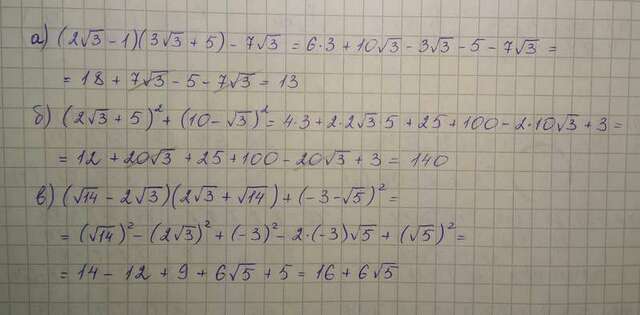 а) (2√3 - 1)(3√3 + 5) - 7√3 = 6·3 + 10√3 - 3√3 - 5 - 7√3 =
= 18 + 7√3 - 5 - 7√3 = 13
б) (2√3 + 5)² + (10 - √3)² = 4·3 + 2·2√3·5 + 25 + 100 - 2·10√3 + 3 =
= 12 + 20√3 + 25 + 100 - 20√3 + 3 = 140
в) (√14 - 2√3)(2√3 + √14) + (-3 - √5)² =
= (√14)² - (2√3)² + (-3)² - 2·(-3)√5 + (√5)² =
= 14 - 12 + 9 + 6√5 + 5 = 16 + 6√5